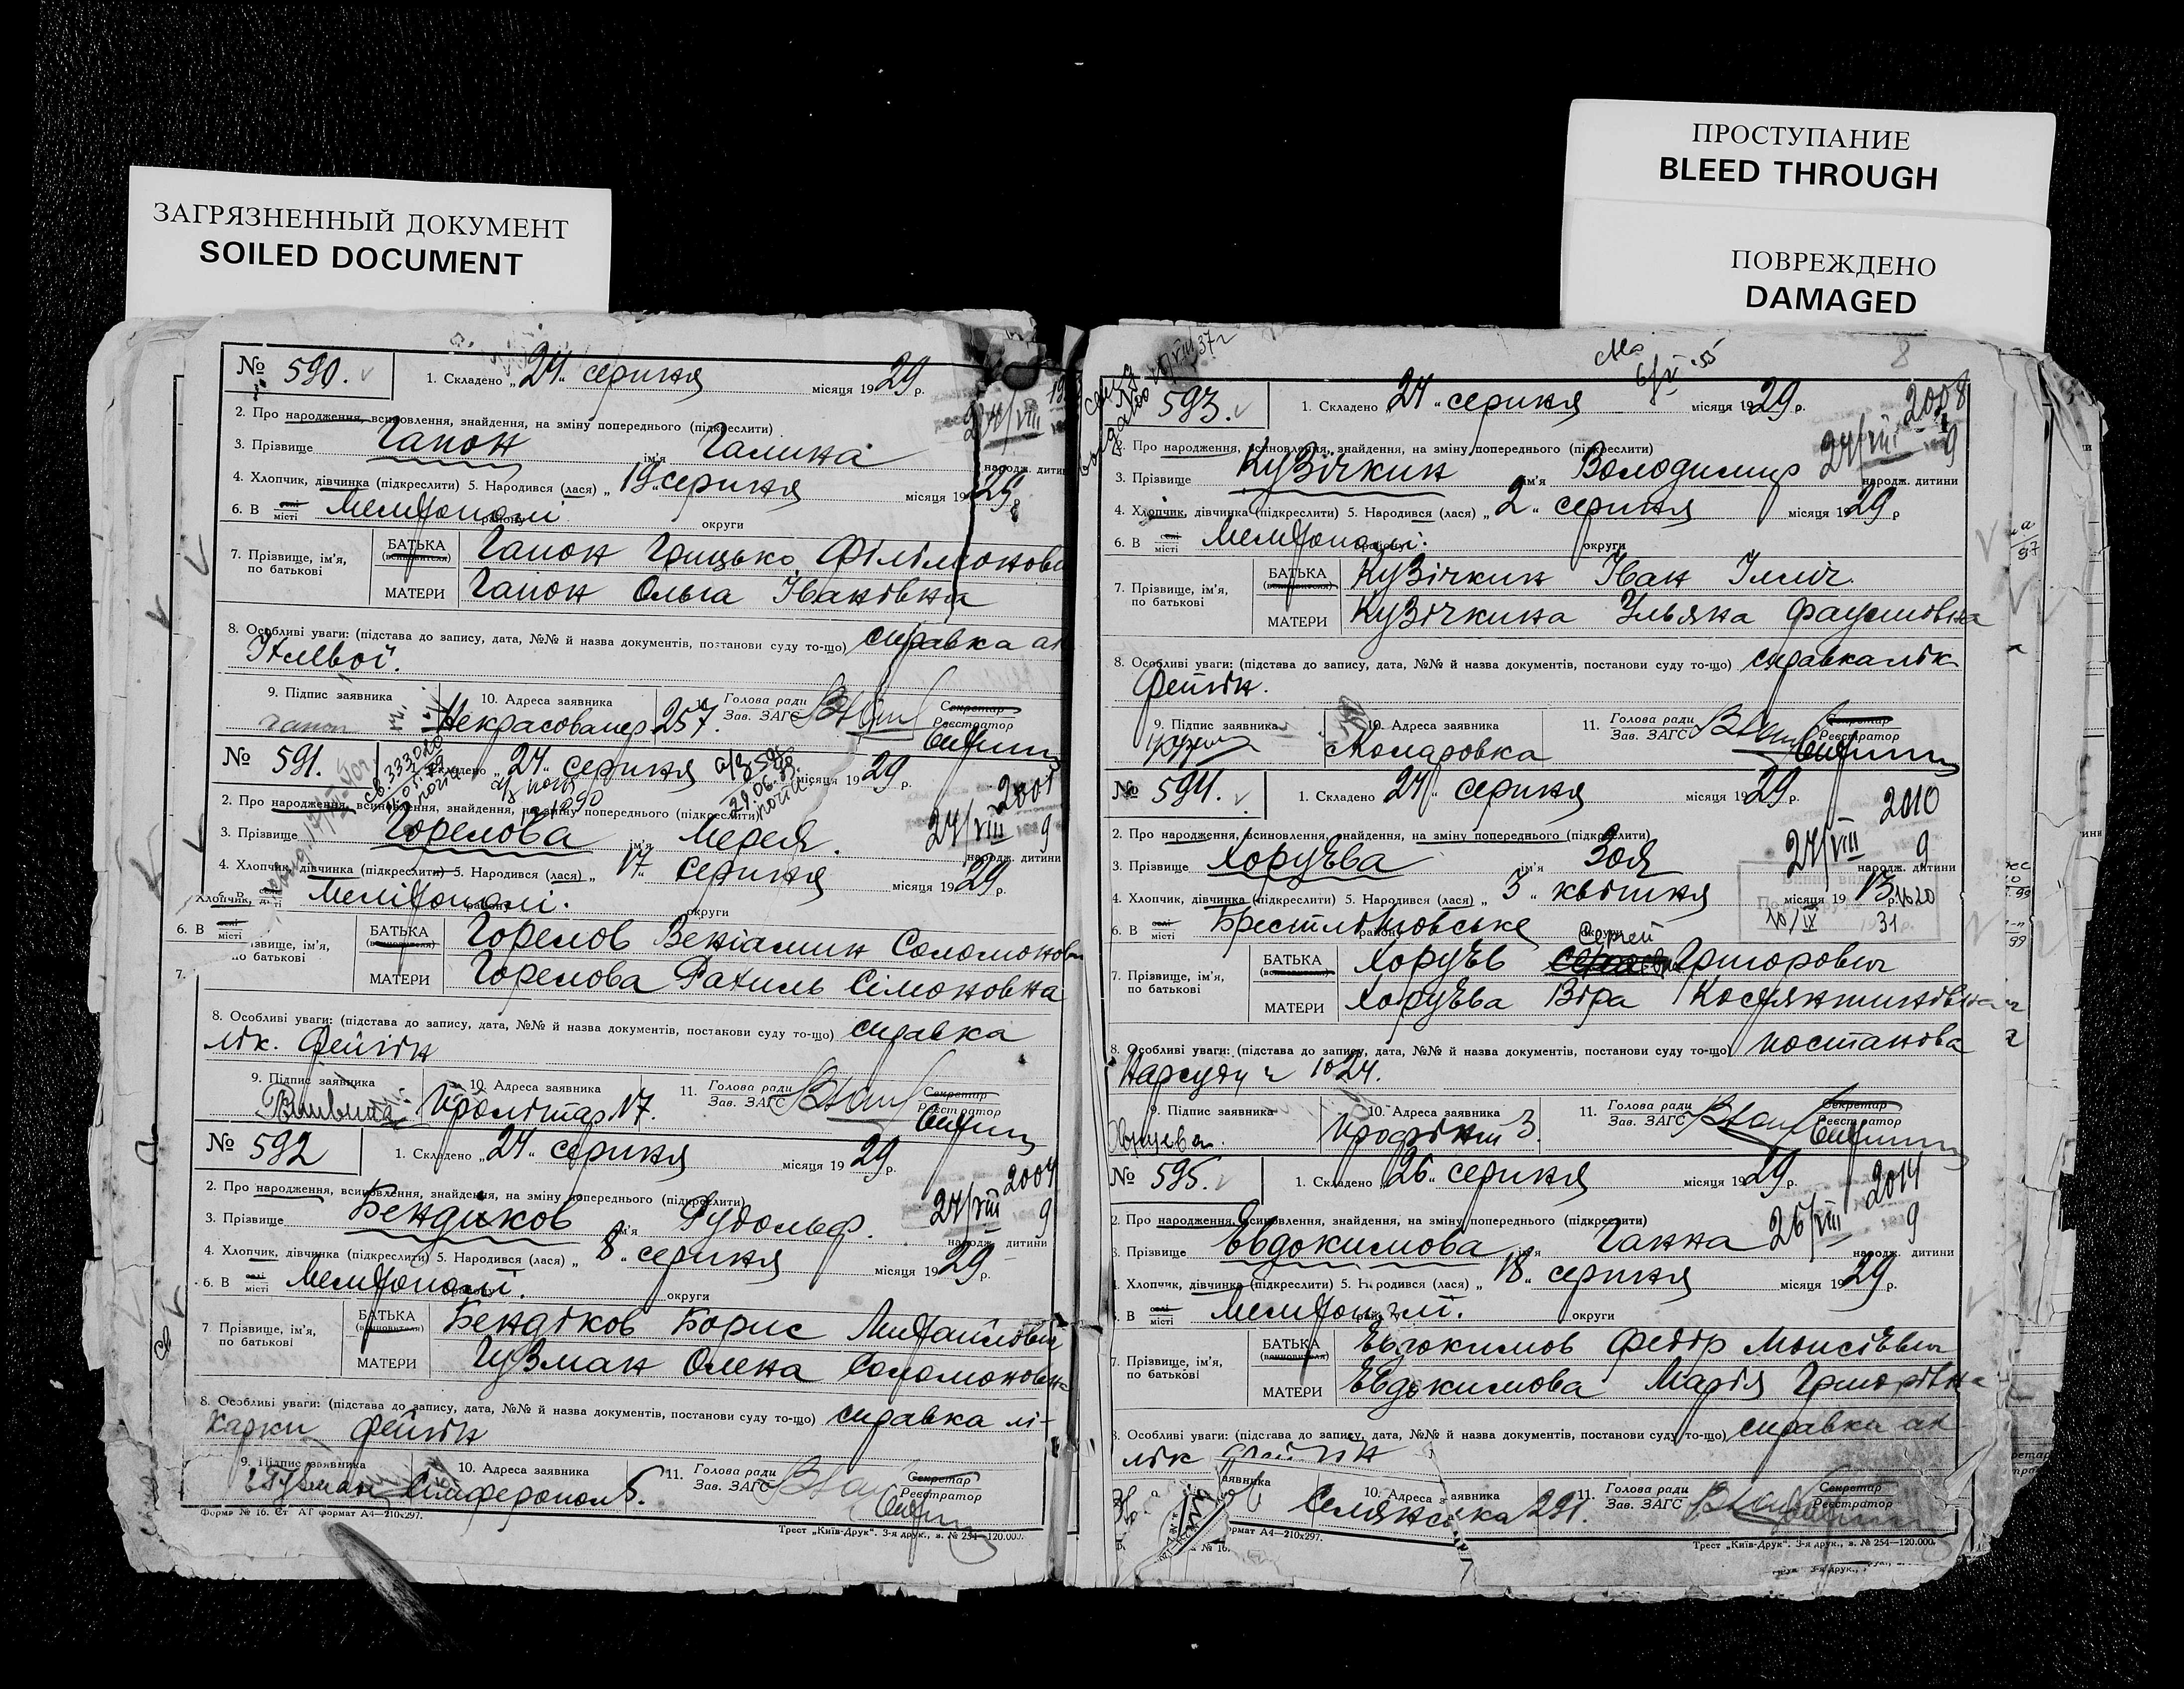 ЗАГРЯЗНЕННЫЙ ДОКУМЕНТ
SOILED DOCUMENT
ПРОСТУПАНИЕ
BLEED THROUGH
ПОВРЕЖДЕНО
DAMAGED
№ 590. 1. Складено „24" серпня місяця 1929 р.
2. Про народження, всиновлення, знайдення, на зміну попереднього (підкреслити)
3. Прізвище Гапон ім'я Галина народж. дитини
4. Хлопчик, дівчинка (підкреслити) 5. Народився (лася) „19" серпня місяця 1929 р.
6. В селі місті Мелітополі району округи
7. Прізвище, ім'я, по батькові
БАТЬКА (всиновителя) Гапон Грицько Філімонови
МАТЕРИ Гапон Ольга Іванівна
8. Особливі уваги: (підстава до запису, дата, №№ й назва документів, постанови суду то-що) справка
9. Підпис заявника Гапон 10. Адреса заявника Некрасова 257. Голова ради Зав. ЗАГС Секретар Реєстратор
№ 591. Складено „24" серпня місяця 1929 р.
2001
2. Про народження, всиновлення, знайдення, на зміну попереднього (підкреслити)
24/VIII 9
3. Прізвище Горелова ім'я Мерея. народж. дитини
4. Хлопчик, дівчинка (підкреслити) 5. Народився (лася) „17" серпня місяця 1929 р.
6. В селі місті Мелітополі. району округи
7. Прізвище, ім'я, по батькові
БАТЬКА (всиновителя) Горелов Веніамин Соломонови
МАТЕРИ Горелова Рахиль Сімоновна
8. Особливі уваги: (підстава до запису, дата, №№ й назва документів, постанови суду то-що) справка
лік. Фейгін
9. Підпис заявника 10. Адреса заявника Пролітар 17. 11. Голова ради Зав. ЗАГС Секретар Реєстратор
№ 592 1. Складено „24" серпня місяця 1929 р.
2004
2. Про народження, всиновлення, знайдення, на зміну попереднього (підкреслити)
24/VIII 9
3. Прізвище Бендиков ім'я Рудольф. народж. дитини
4. Хлопчик, дівчинка (підкреслити) 5. Народився (лася) „8" серпня місяця 1929 р.
6. В селі місті Мелітополі. району округи
7 Прізвище, ім'я, по батькові
БАТЬКА (всиновителя) Бендіков Борис Михайлович
МАТЕРИ Гузман Олена Соломоновна
8. Особливі уваги: (підстава до запису, дата, №№ й назва документів, постанови суду то-що) справка лі-
карки Фейгін
9. Підпис заявника Гузман 10. Адреса заявника Сімферопол 5. 11. Голова ради Зав. ЗАГС Секретар Реєстратор
Форма № 16. Ст АТ формат А4—210х297.
Трест „Київ-Друк". 3-я друк., в. № 254—120.000.
8
№ 593. 1. Складено „24" серпня місяця 1929 р.
2008
2. Про народження, всиновлення, знайдення, на зміну попереднього (підкреслити)
24/VIII 9
3. Прізвище Кузічкин ім'я Володимир народж. дитини
4. Хлопчик, дівчинка (підкреслити) 5. Народився (лася) „2" серпня місяця 1929 р
6. В селі місті Мелітополі. району округи
7. Прізвище, ім'я, по батькові
БАТЬКА (всиновителя) Кузічкин Іван Ілліч.
МАТЕРИ Кузічкина Ульяна Фаустовна
8. Особливі уваги: (підстава до запису, дата, №№ й назва документів, постанови суду то-що) справка лік
Фейгін.
9. Підпис заявника 10. Адреса заявника Комаровка 11. Голова ради Зав. ЗАГС Секретар Реєстратор
№ 594. 1. Складено „24" серпня місяця 1929 р.
2010
2. Про народження, всиновлення, знайдення, на зміну попереднього (підкреслити)
24/VIII 9
3. Прізвище Хоруєва ім'я Зоя народж. дитини
4. Хлопчик, дівчинка (підкреслити) 5. Народився (лася) „5" квітня місяця 1913 р.
10/IX 31
6. В селі місті Брестлітовське району округи
Сергей
7. Прізвище, ім'я, по батькові
БАТЬКА (всиновителя) Хоруєв Григорович
МАТЕРИ Хоруєва Віра Костянтинівна
8. Особливі уваги: (підстава до запису, дата, №№ й назва документів, постанови суду то-що) постанова
Нарсуду
9. Підпис заявника 10. Адреса заявника Профінт 3. 11. Голова ради Зав. ЗАГС Секретар Реєстратор
№ 595. 1. Складено „26" серпня місяця 1929 р.
2014
2. Про народження, всиновлення, знайдення, на зміну попереднього (підкреслити)
26/VIII 9
3. Прізвище Евдокимова ім'я Ганна народж. дитини
4. Хлопчик, дівчинка (підкреслити) 5. Народився (лася) „18" серпня місяця 1929 р.
6. В селі місті Мелітополі. району округи
7. Прізвище, ім'я, по батькові
БАТЬКА (всиновителя) Евдокимов Федір Моисієвич
МАТЕРИ Евдокимова Марія Григорівна
8. Особливі уваги: (підстава до запису, дата, №№ й назва документів, постанови суду то-що) справка
лік Фейгін
заявника 10. Адреса заявника Селянська 291. 11. Голова ради Зав. ЗАГС Секретар Реєстратор
формат А4—210х297.
Трест „Київ-Друк". 3-я друк., в. № 254—120.000.